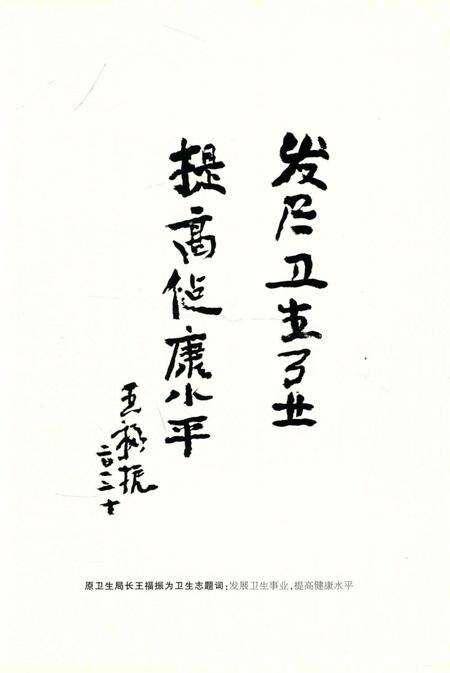 发尸卫生事业
提高健康水平
王福振
二〇一二十
原卫生局长王福振为卫生志题词：发展卫生事业，提高健康水平